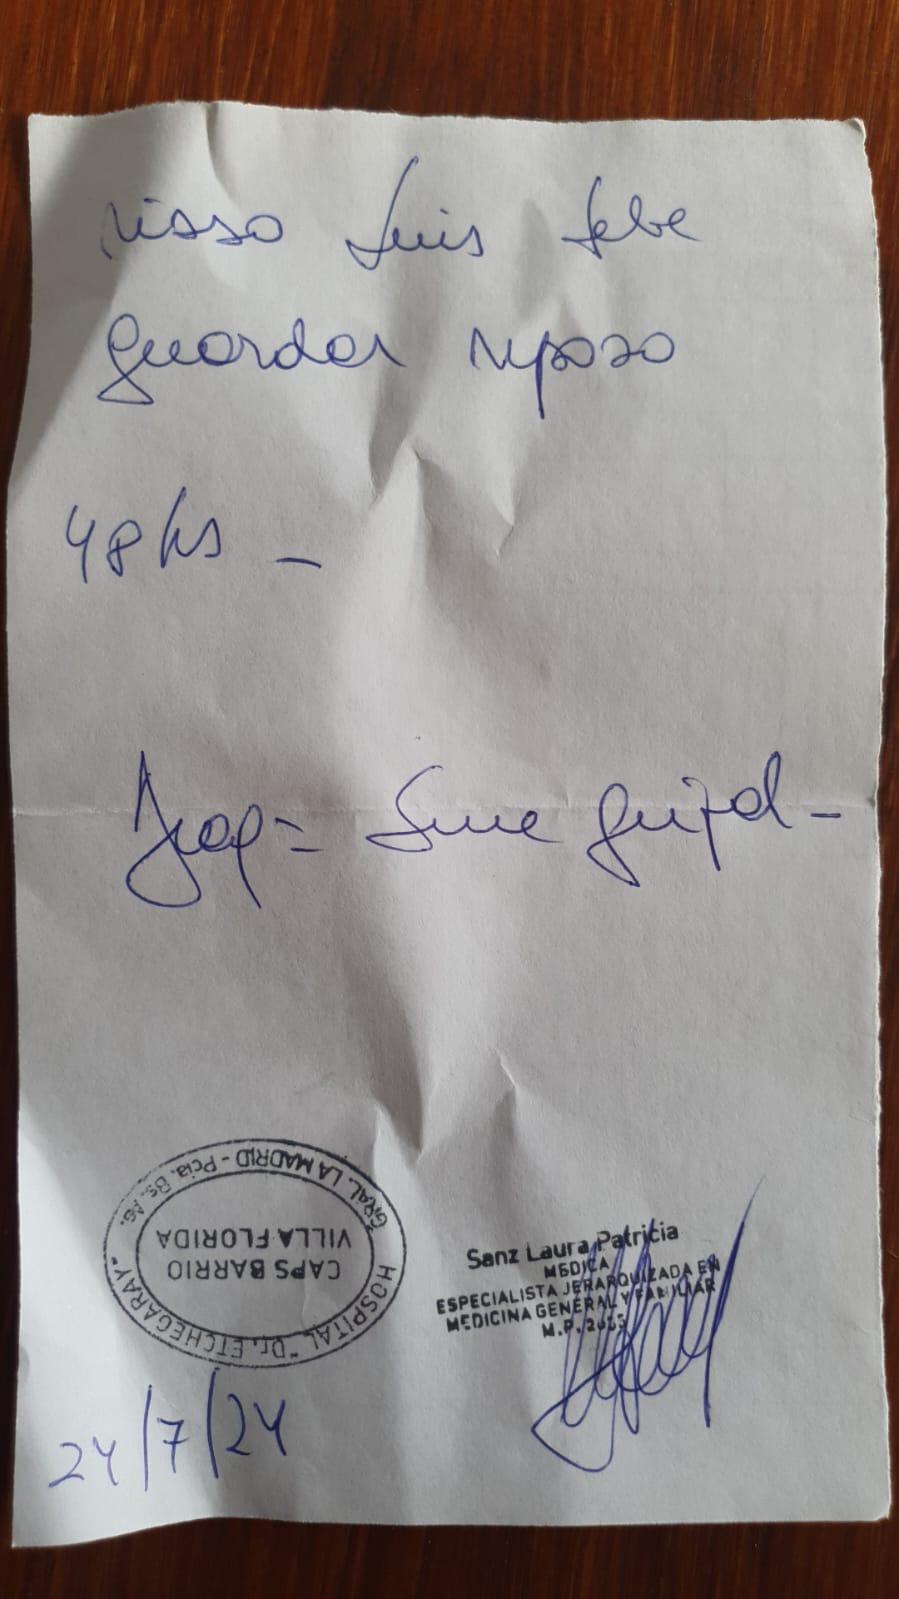 Risso Luis debe
guardar reposo
48 hs -
Diag = Sme gripal -
HOSPITAL "Dr. ETCHEGARAY"
GRAL. LA MADRID - Pcia. Bs. As.
CAPS BARRIO
VILLA FLORIDA
Sanz Laura Patricia
MEDICA
ESPECIALISTA JERARQUIZADA EN
MEDICINA GENERAL Y FAMILIAR
M.P.
24/7/24